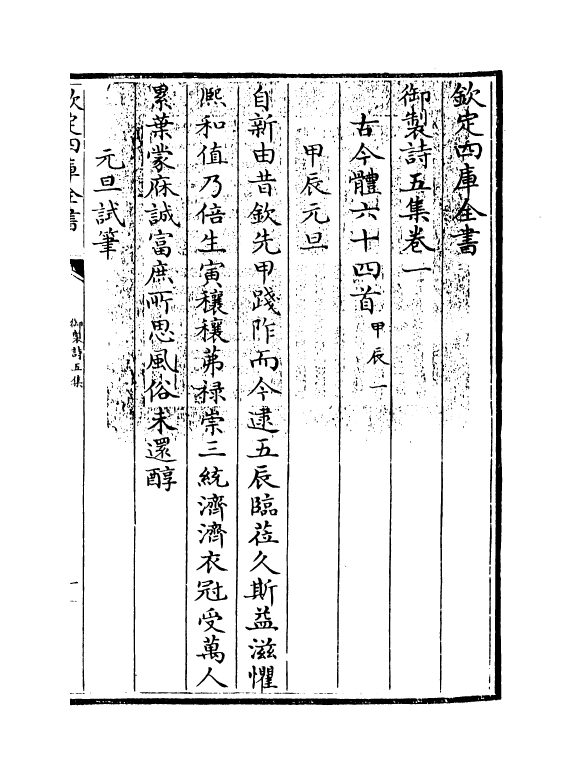 欽定四庫全書
御製詩五集卷一
古今體六十四首甲辰一
甲辰元旦
自新由昔欽先甲踐阼而今逮五辰臨莅久斯益滋懼
熙和值乃倍生寅穰穰茀祿崇三統濟濟衣冠受萬人
累葉蒙庥誠富庶所思風俗未還醇
元旦試筆
欽定四庫全書
御製詩五集
一